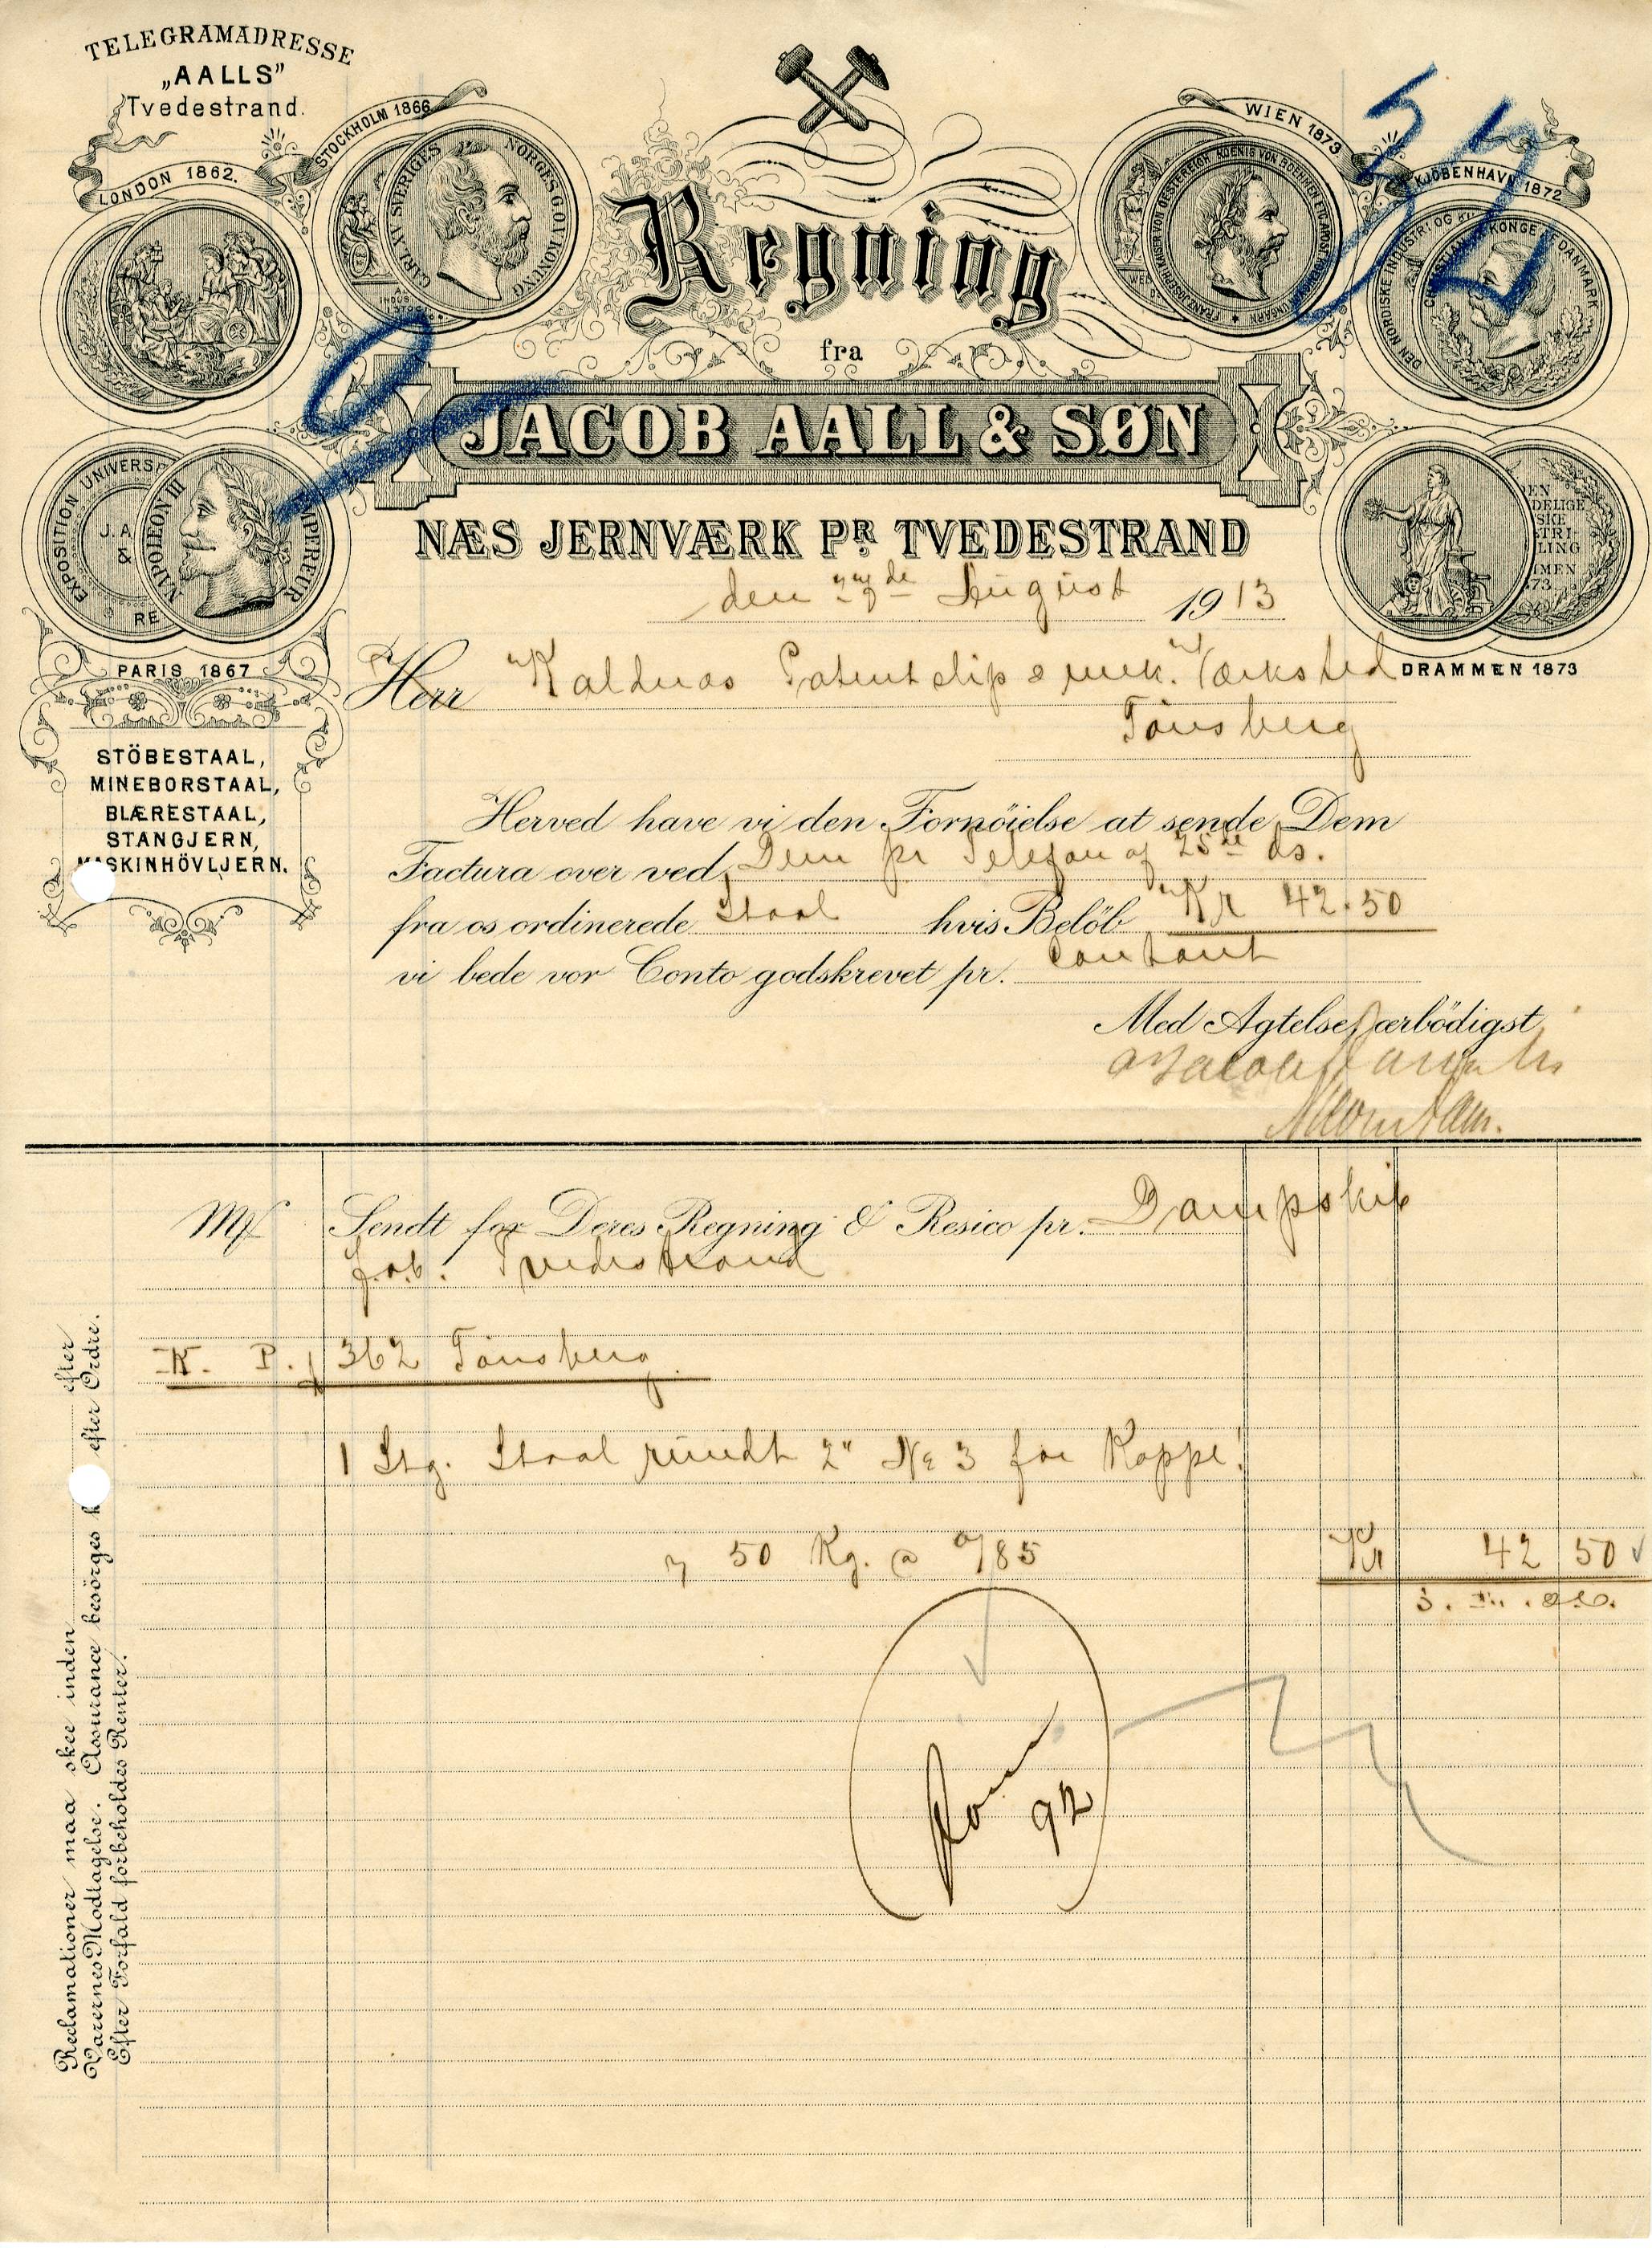 TELEGRAMADRESSE
„AALLS”
Tvedestrand.
LONDON 1862.
STOCKHOLM 1866
CARL XV SVERIGES NORGES G.O.V. KONUNG
WIEN 1873
KJÖBENHAVN 1872
Regning
fra
JACOB AALL & SØN
NÆS JERNVÆRK PR TVEDESTRAND
EXPOSITION UNIVERS
J. A
&
RE
NAPOLEON III EMPEREUR
PARIS 1867
DRAMMEN 1873
STÖBESTAAL,
MINEBORSTAAL,
BLÆRESTAAL,
STANGJERN,
MASKINHÖVLJERN.
August 1913
Herr Kaldnæs Patentslip & mek. Værksted
Tønsberg
Herved have vi den Fornöielse at sende Dem
Factura over ved Dem pr Telefon af 25de ds.
fra os ordinerede Staal hvis Belöb Kr 42.50
vi bede vor Conto godskrevet pr. Contant
Med Agtelse ærbödigst
Sendt for Deres Regning & Resico pr. Dampskib
f.o.b. Tvedestrand
K. P. 362 Tønsberg
1 Stg. Staal rundt 2" No 3 for Kopper
50 Kg. @ 0/85 Kr 42 50
92
Reclamationer maa skee inden efter
Varernes Modtagelse. Assurance besörges efter Ordre.
Efter Forfald forbeholdes Renter.